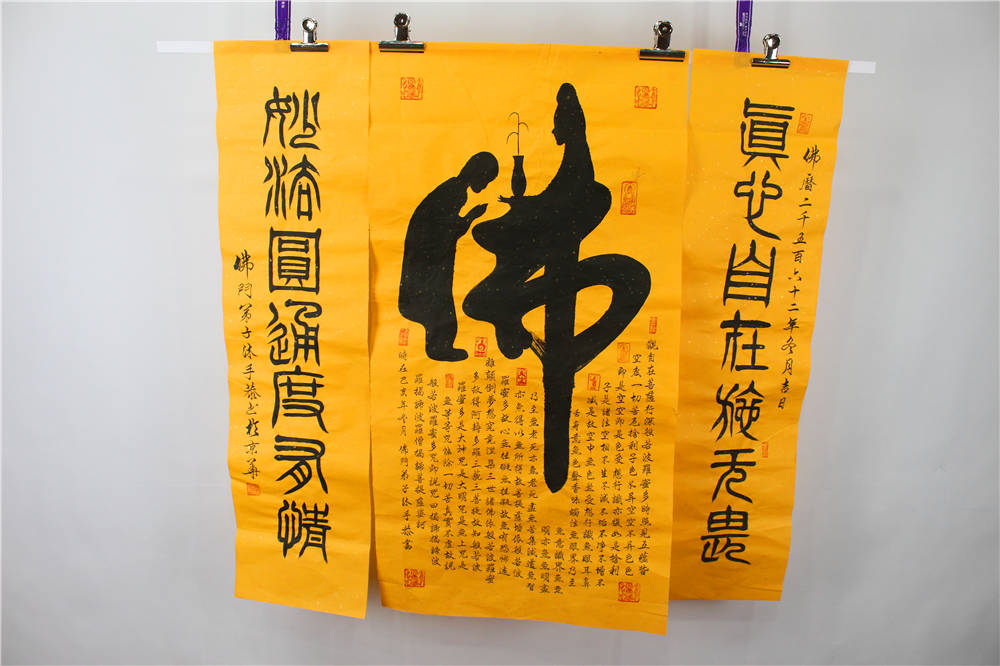 佛曆二千五百六十二年冬月吉日
眞心自在施无畏
佛
觀自在菩薩行深般若波羅蜜多時照見五蘊皆
空度一切苦厄捨利子色不异空空不异色色
即是空空即是色受想行識亦復如是捨利
子是諸法空相不生不滅不垢不淨不增不
減是故空中無色無受想行識無眼耳鼻
舌身意無色聲香味觸法無眼界乃至
無意識界無無
明亦無無明盡
乃至無老死亦無老死盡無苦集滅道無智
亦無得以無所得故菩提薩埵依般若波
羅蜜多故心無罣礙無罣礙故無有恐怖遠
離顛倒夢想究竟涅槃三世諸佛依般若波羅蜜
多故得阿耨多羅三藐三菩提故知般若波
羅蜜多是大神咒是大明咒是無上咒是
無等等咒能除一切苦真實不虛故說
般若波羅蜜多咒即說咒曰揭諦揭諦波
羅揭諦波羅僧揭諦菩提薩婆訶
時在己亥年冬月佛門弟子沐手恭書
妙法圓通度有情
佛門弟子沐手恭书於京華